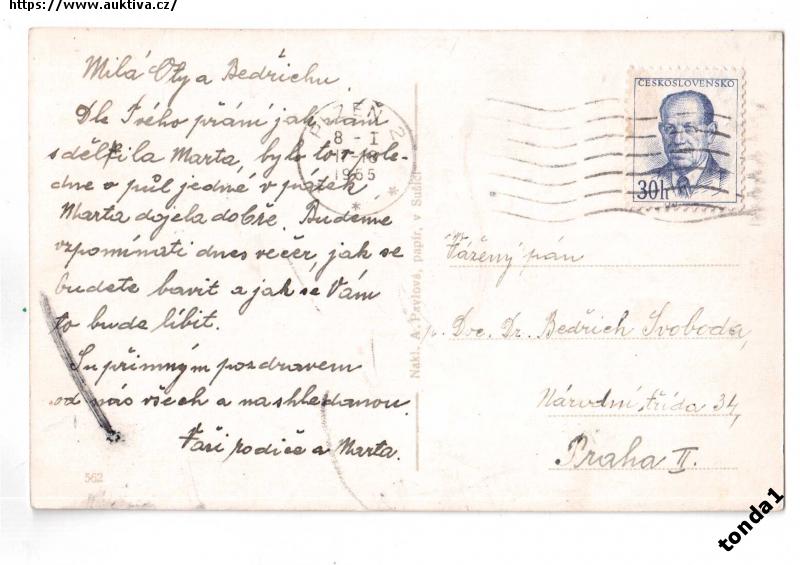 https://www.auktiva.cz/
Milá Oly a Bedřichu.
Dle Tvého přání jak nám
sdělila Marta, bylo to v pole-
dne o půl jedné v pátek
Marta dojela dobře. Budeme
vzpomínati dnes večer, jak se
budete bavit a jak se Vám
to bude líbit.
S upřímným pozdravem
od nás všech a na shledanou.
Vaši rodiče a Marta.
562
Nakl. A. Pavlová, papír, v Sušici
PLZEŇ 2
8 - I
17-18
1955
* * *
ČESKOSLOVENSKO
30h
Vážený pán
p. Doc. Dr. Bedřich Svoboda,
Národní třída 34,
Praha II.
tonda1